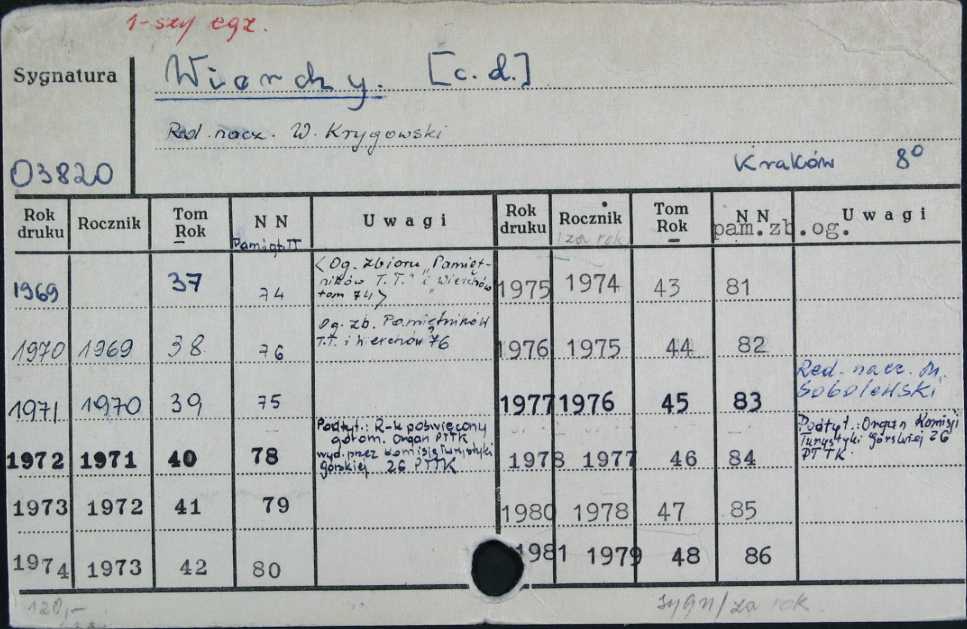 1-szy egz.
Sygnatura
Wierchy. [c. d.]
Red. nacz. W. Krygowski
03820
Kraków 8°
Rok druku Rocznik Tom Rok NN Uwagi Rok druku Rocznik Tom Rok NN Uwagi
Pamięt. TT za rok pam.zb.og.
1969 37 74 <Og. zbioru "Pamięt-
ników T.T." i Wierchów
tom 74> 1975 1974 43 81
1970 1969 38 76 Og. zb. Pamiętników
T.T. i Wierchów 76 1976 1975 44 82
1971 1970 39 75 1977 1976 45 83 Red. nacz. M.
Sobolewski
1972 1971 40 78 Podtyt.: R-k poświęcony
górom. Organ PTTK
wyd. przez Komisję Turystyki
Górskiej ZG PTTK 1978 1977 46 84 Podtyt.: Organ Komisji
Turystyki Górskiej ZG
PTTK
1973 1972 41 79 1980 1978 47 85
1974 1973 42 80 1981 1979 48 86
120,-
sygn/za rok